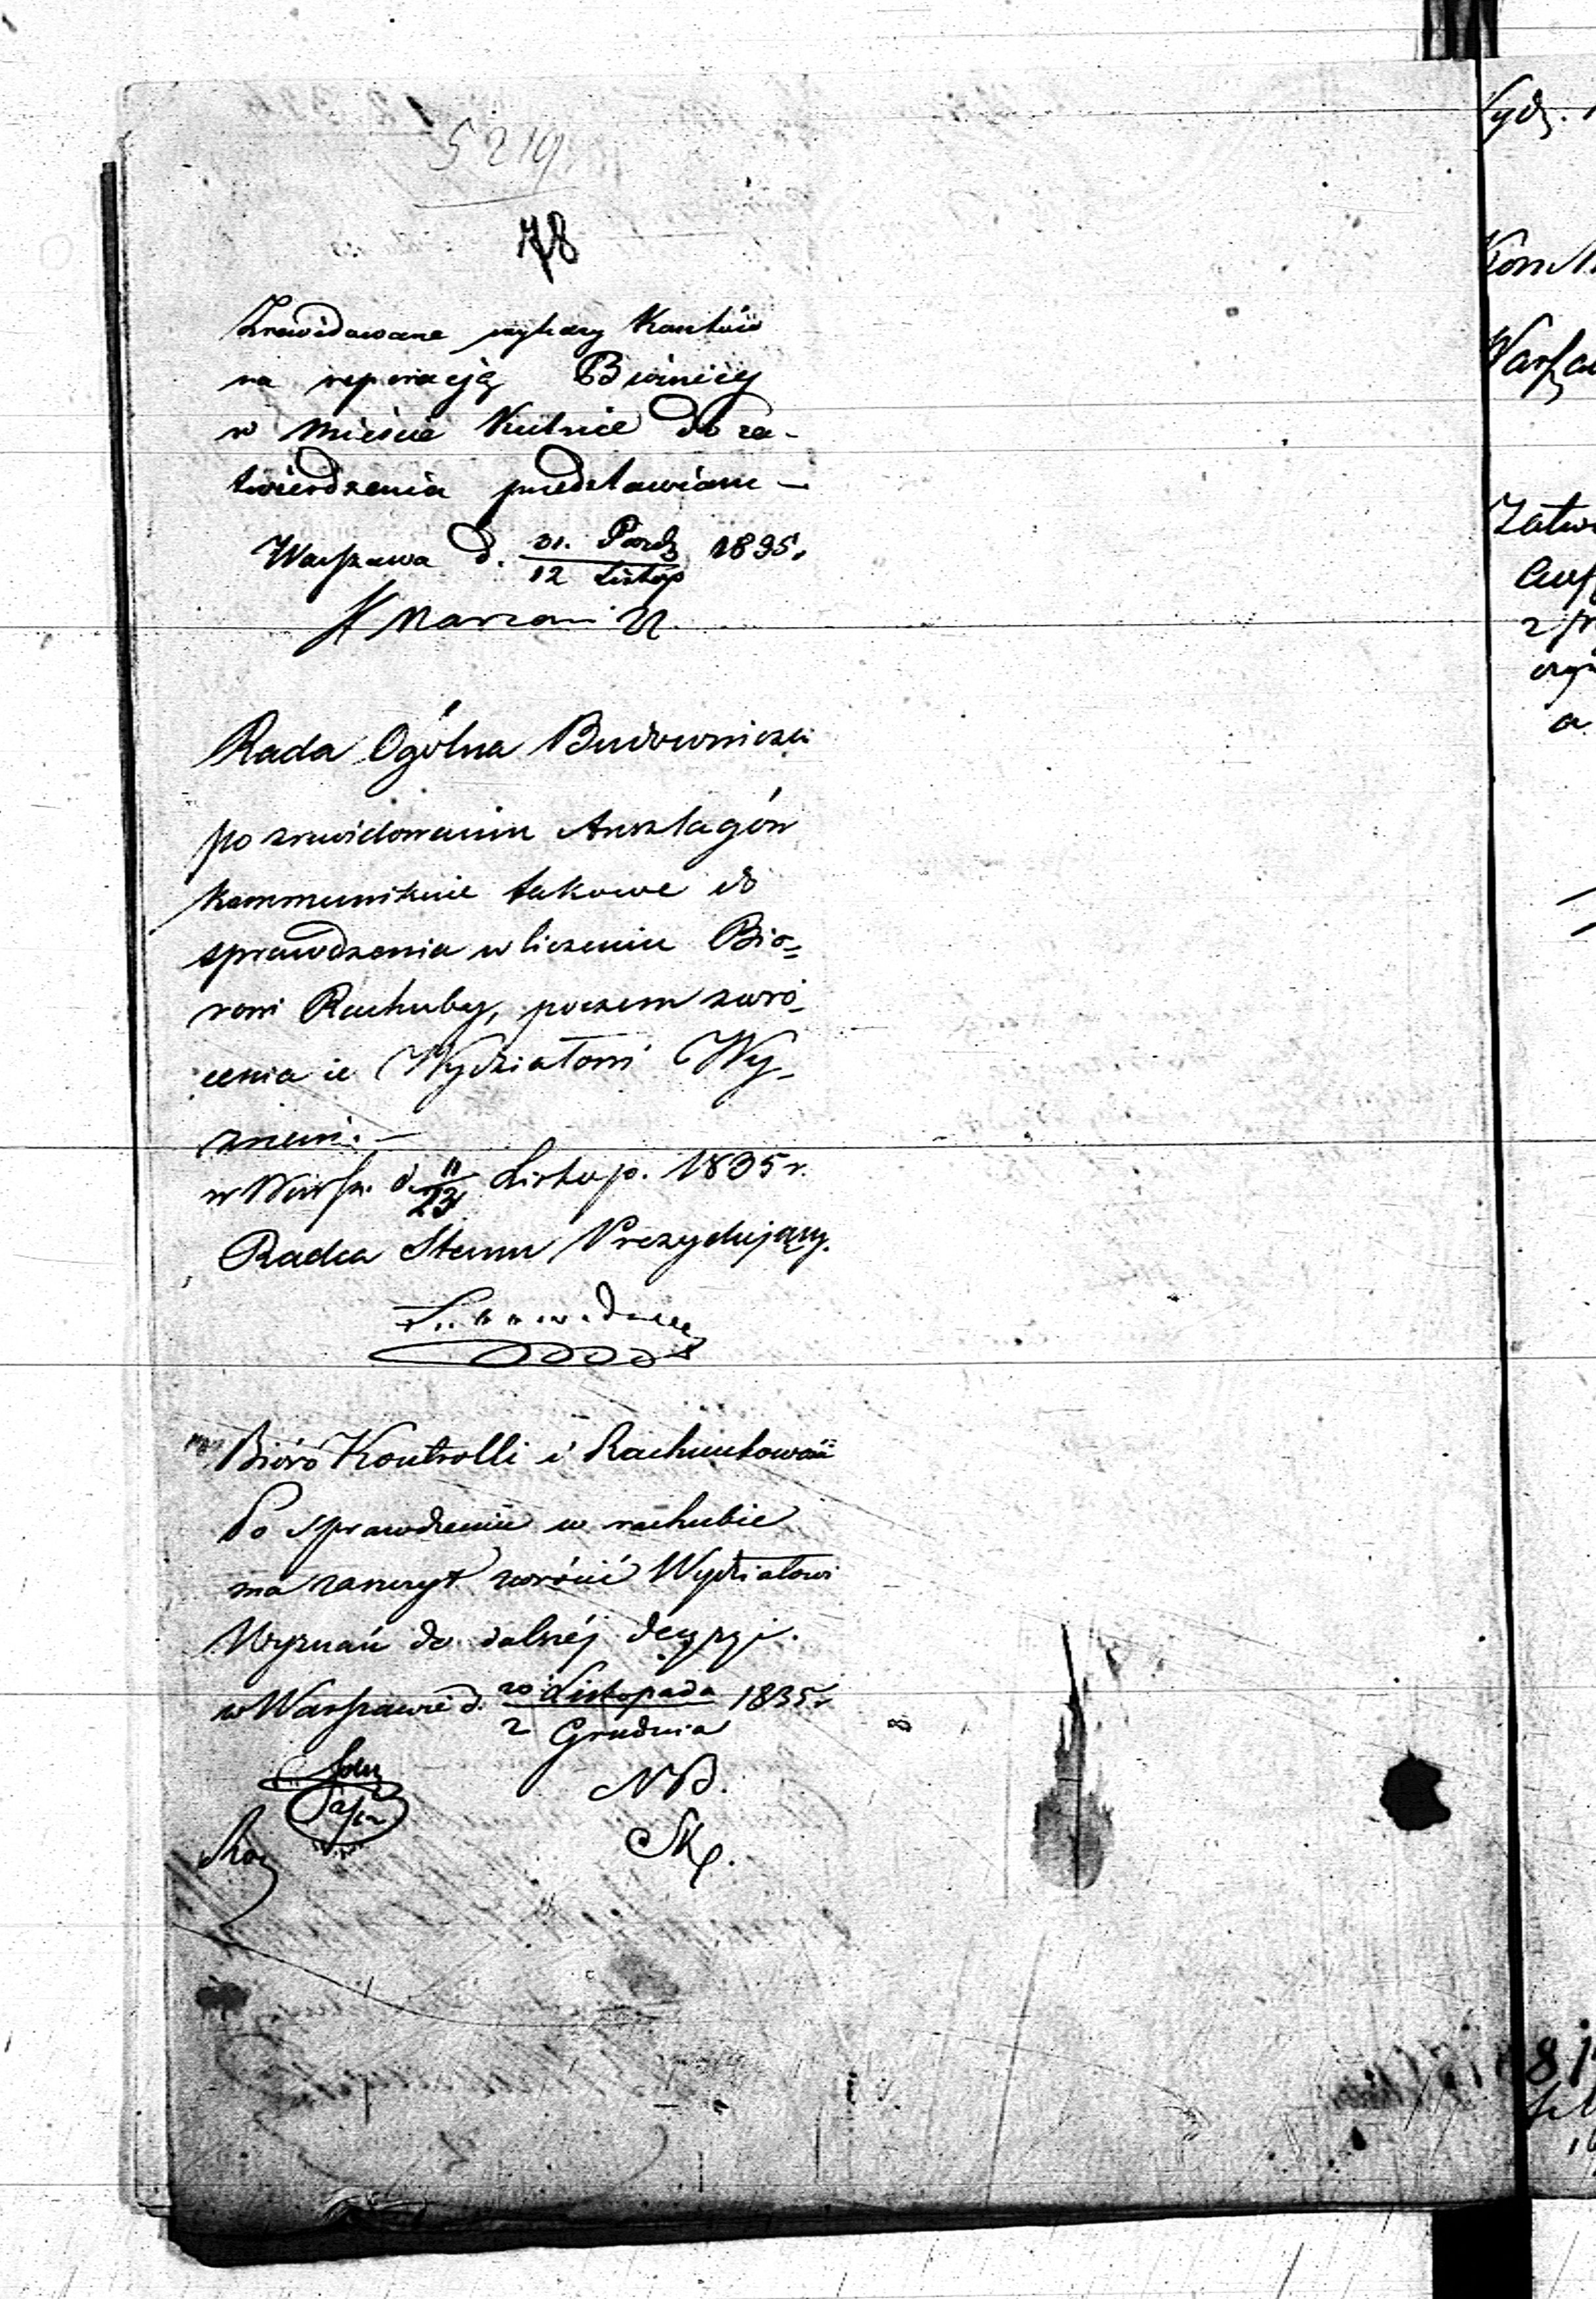 5219
78
Zrewidowane wykazy Kosztów
na reperacją Bóżnicy
w mieście Kutnie do za-
twierdzenia przedstawiam —
Warszawa d. 31. Paźdz / 12 Listop 1835.
Rada Ogólna Budownicza
po zrewidowaniu Anszlagów
kommunikuie takowe do
sprawdzenia w liczeniu Bió=
rowi Rachuby, poczem zwró-
cenia ie Wydziałowi Wy-
znań. —
w Warsz. d. 11/23 Listop. 1835 r.
Radca Stanu Prezydujący.
Bióro Kontrolli i Rachunkowości
Po sprawdzeniu w rachubie
ma zaszczyt zwrócić Wydziałowi
Wyznań do dalszéj decyzyi.
w Warszawie d. 20 Listopada / 2 Grudnia 1835 r
NB.
Wydz.